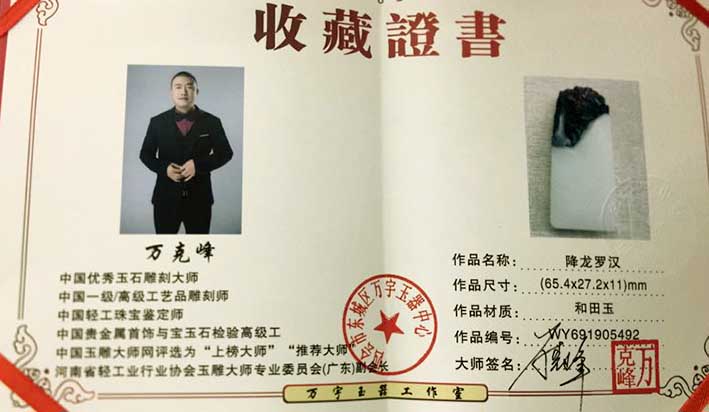 收藏證書
万克峰
中国优秀玉石雕刻大师
中国一级/高级工艺品雕刻师
中国轻工珠宝鉴定师
中国贵金属首饰与宝玉石检验高级工
中国玉雕大师网评选为“上榜大师”“推荐大师”
河南省轻工业行业协会玉雕大师专业委员会(广东)副会长
作品名称: 降龙罗汉
作品尺寸: (65.4x27.2x11)mm
作品材质: 和田玉
作品编号: WY691905492
大师签名:
万克峰
会市东城区万宇玉器中心
万宇玉器工作室